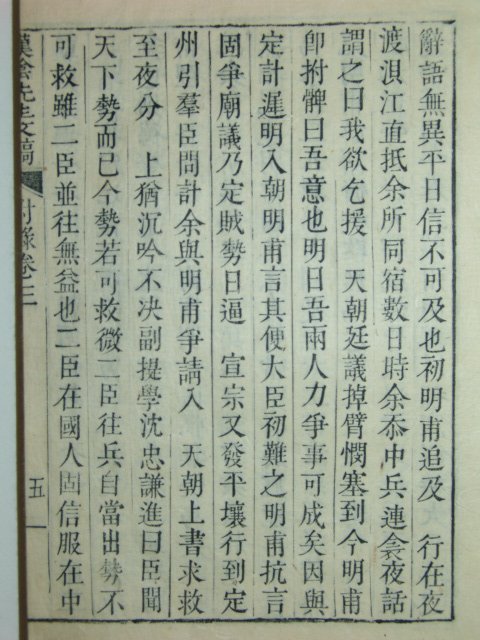 辭語無異平日信不可及也初明甫追及 行在夜
渡浿江直抵余所同宿數日時余忝中兵連衾夜話
謂之曰我欲乞援 天朝廷議掉臂憫塞到今明甫
卽拊髀曰吾意也明日吾兩人力爭事可成矣因與
定計遲明入朝明甫言其便大臣初難之明甫抗言
固爭廟議乃定賊勢日逼 宣宗又發平壤行到定
州引羣臣問計余與明甫爭請入 天朝上書求救
至夜分 上猶沉吟不決副提學沈忠謙進曰臣聞
天下勢而已今勢若可救微二臣往兵自當出勢不
可救雖二臣並往無益也二臣在國人固信服在中
漢陰先生文稿 附錄卷三 五